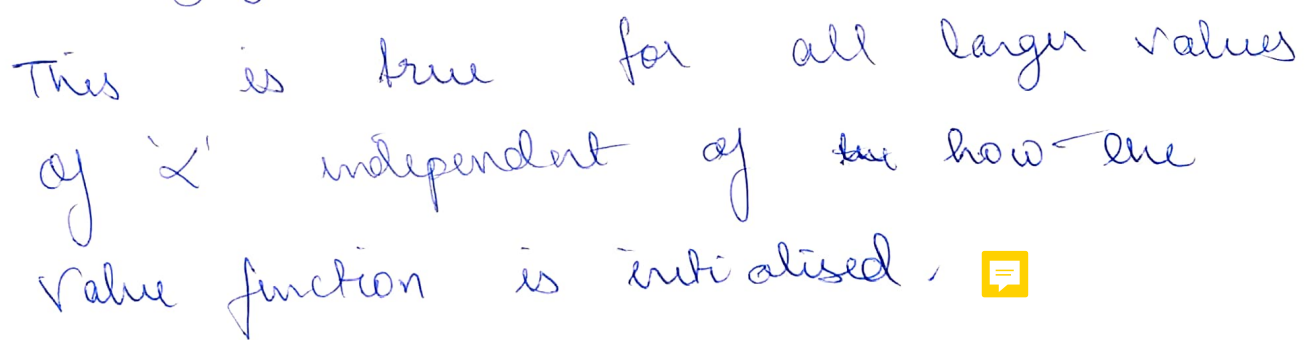 This is true for all larger values
of 'α' independent of how the
value function is initialised.